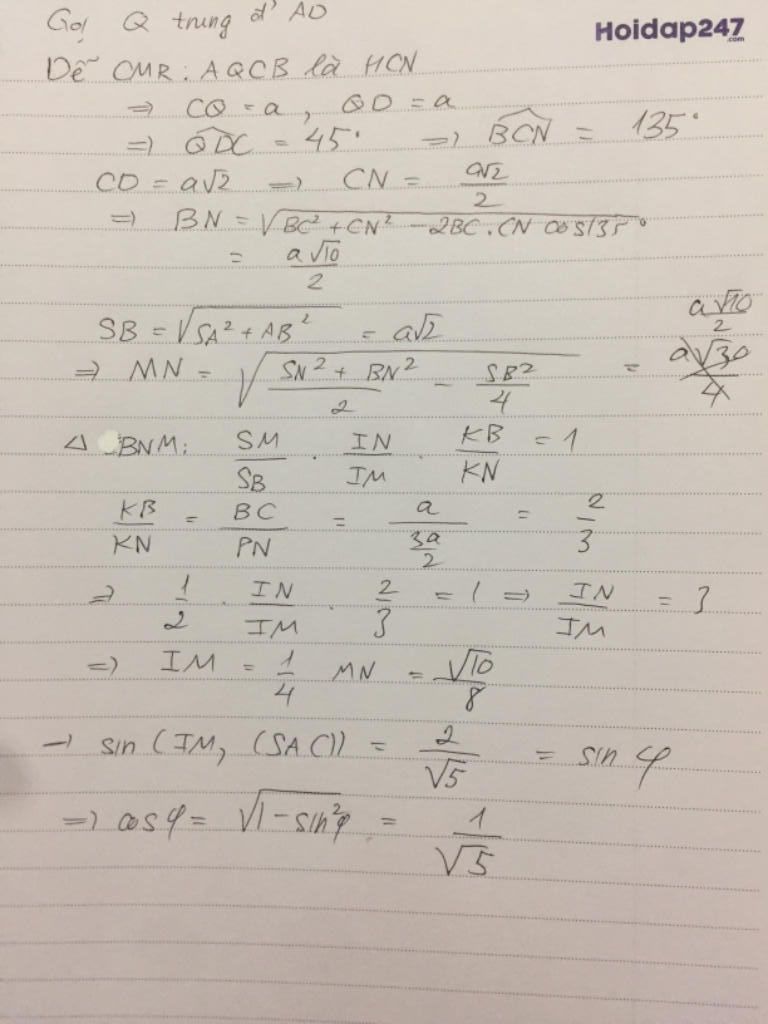 Gọi Q trung đ' AD
Hoidap247
.com
Dễ CMR: AQCB là HCN
=> CQ = a, QD = a
=> QDC = 45° => BCN = 135°
CD = a√2 => CN = a√2/2
=> BN = √(BC² + CN² - 2BC.CN cos135°)
= a√10/2
SB = √(SA² + AB²) = a√2
=> MN = √((SN² + BN²)/2 - SB²/4) = a√10/2
a√30/4
Δ BNM: SM/SB . IN/IM . KB/KN = 1
KB/KN = BC/PN = a/(3a/2) = 2/3
=> 1/2 . IN/IM . 2/3 = 1 => IN/IM = 3
=> IM = 1/4 MN = √10/8
→ sin(IM, (SAC)) = 2/√5 = sin φ
=> cosφ = √(1-sin²φ) = 1/√5